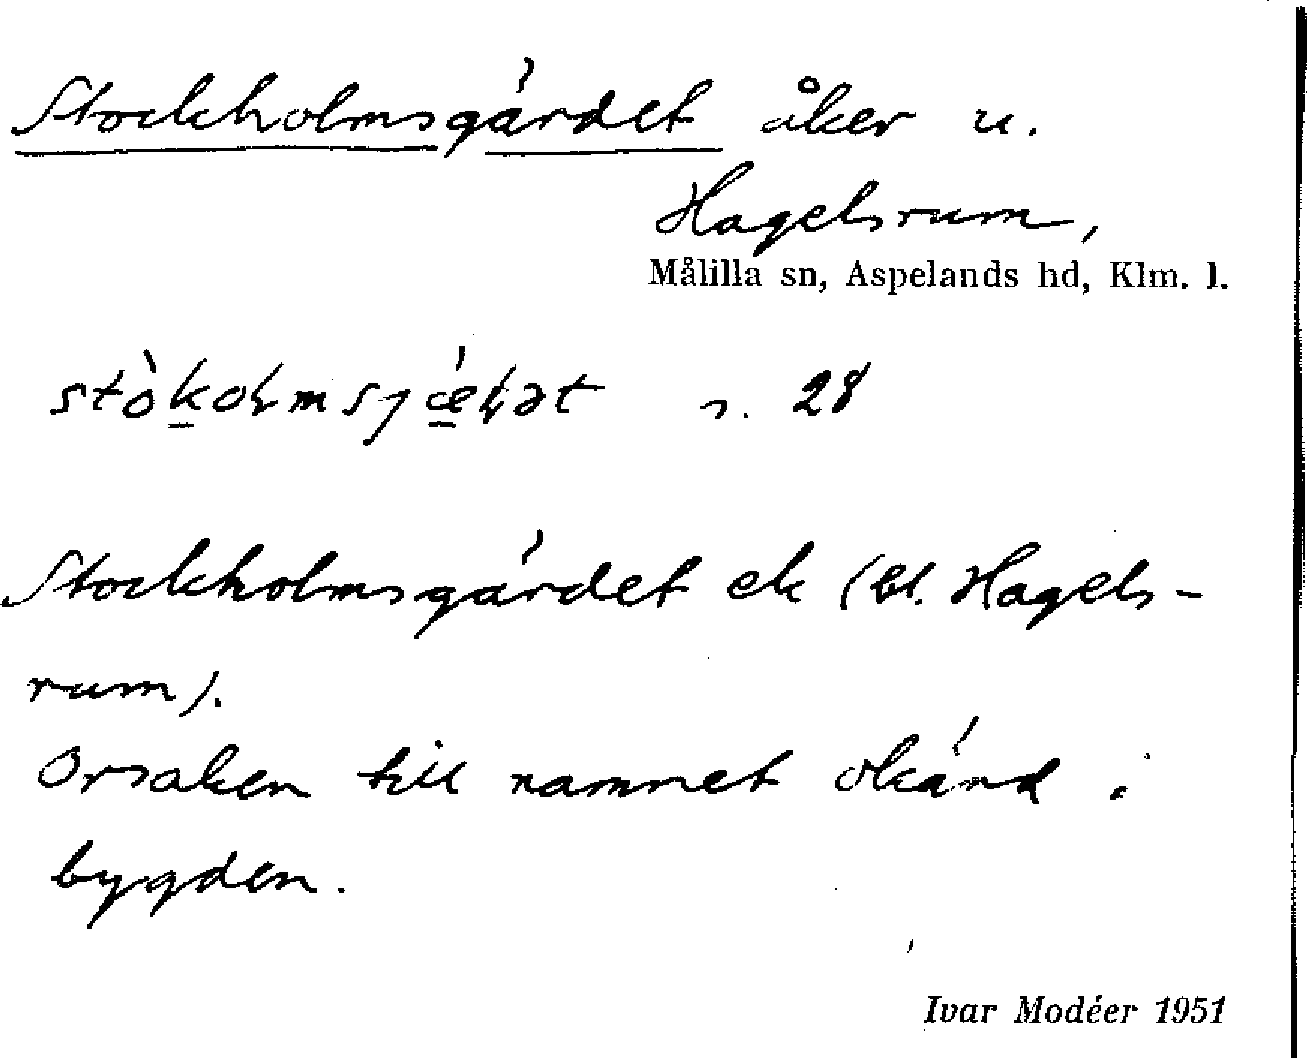 Stockholmsgärdet åker u.
Hagelsrum,
Målilla sn, Aspelands hd, Klm. l.
n. 28
Stockholmsgärdet ek (bl. Hagels-
rum).
Orsaken till namnet okänd i
bygden.
Ivar Modéer 1951